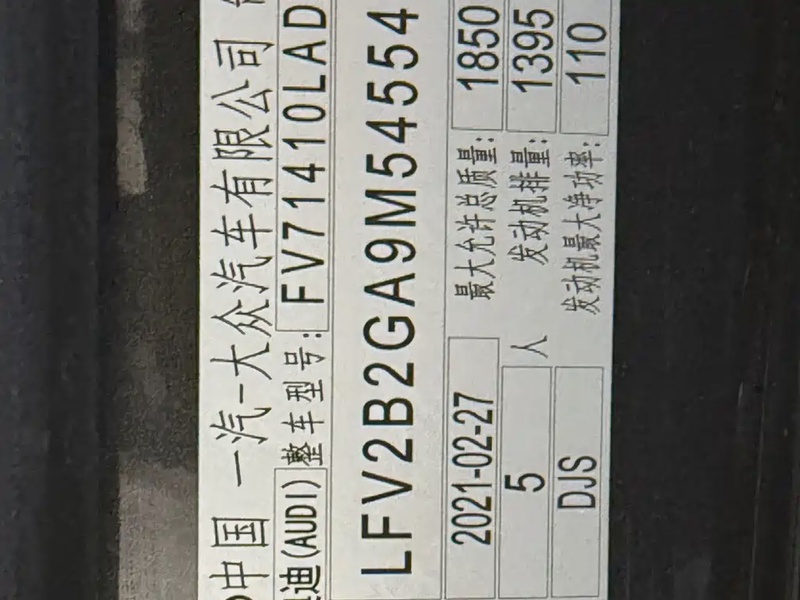 中国 一汽-大众汽车有限公司
迪(AUDI) 整车型号: FV71410LAD
LFV2B2GA9M54554
2021-02-27 最大允许总质量: 1850
5 人 发动机排量: 1395
DJS 发动机最大净功率: 110